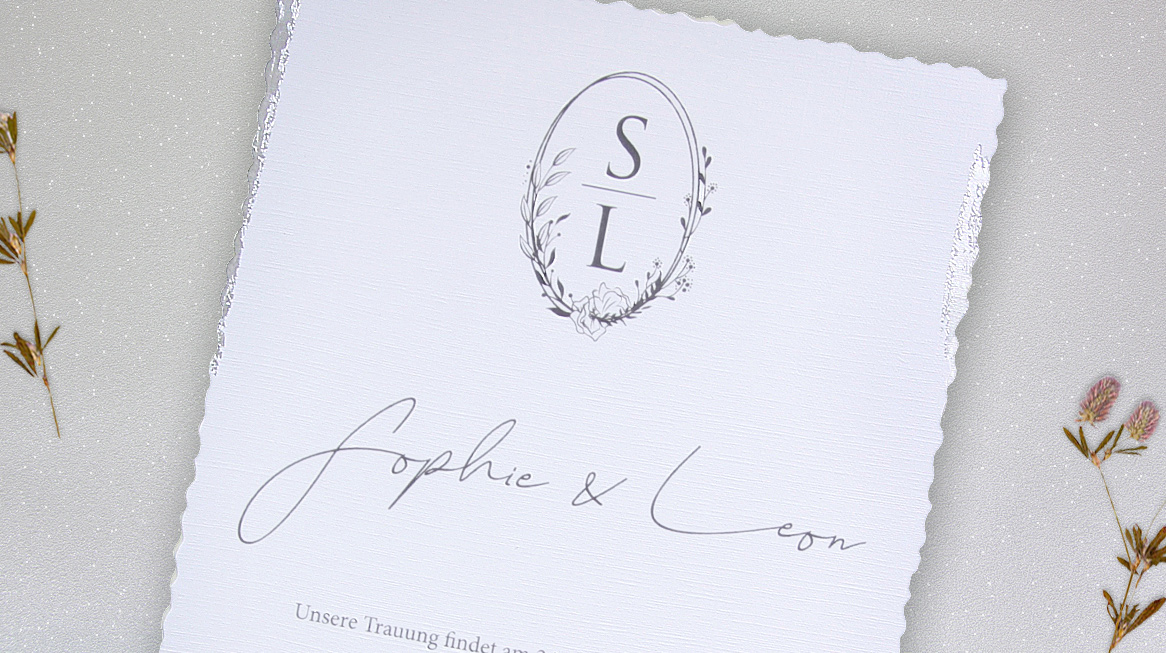 S
L
Sophie & Leon
Unsere Trauung findet am